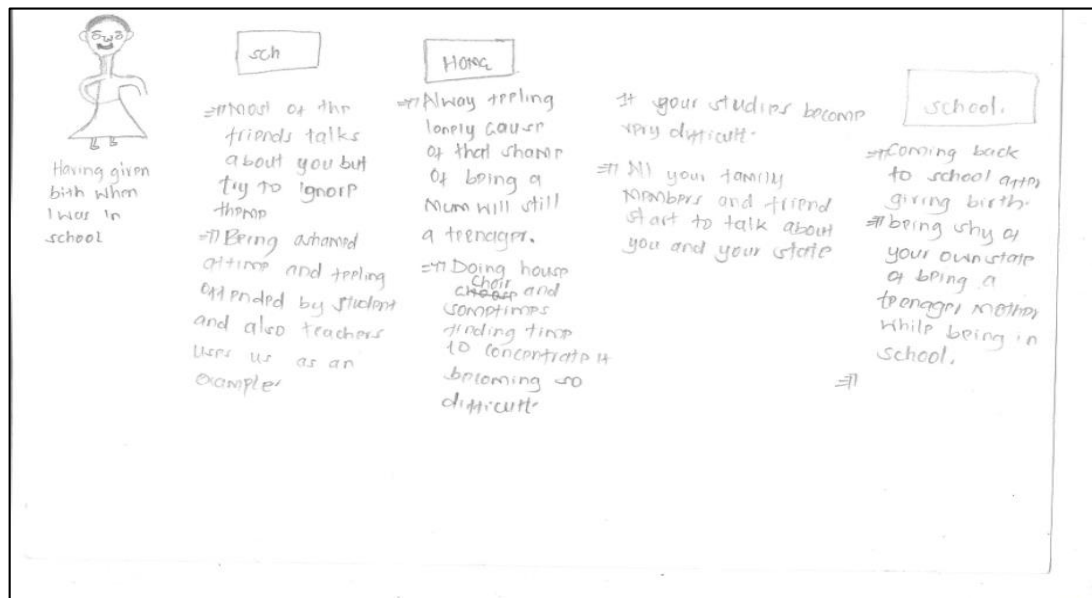 Having given
bith when
I was in
school
sch
⇒ Most of the
friends talks
about you but
try to ignore
theme
⇒ Being ashamed
attime and feeling
offended by student
and also teachers
uses us as an
example
Home
⇒ Alway feeling
lonely cause
of that shame
of being a
Mum will still
a teenager.
⇒ Doing house
choir
and
sometimes
finding time
to concentrate it
becoming so
difficult.
It your studies become
very difficult.
⇒ All your family
Members and friend
start to talk about
you and your state
school.
⇒ Coming back
to school after
giving birth.
⇒ being shy of
your own state
of being a
teenager mother
while being in
school.
⇒